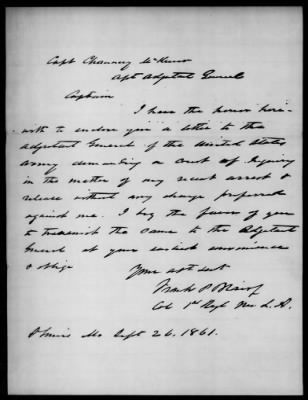 Capt Chauncey McKeever
Asst Adjutant General
Captain
I have the honor here-
with to enclose you a letter to the
Adjutant General of the United States
Army demanding a Court of Inquiry
in the matter of my recent arrest &
release without any charge preferred
against me. I beg the favor of you
to transmit the same to the Adjutant
General at your earliest convenience
& oblige
Your obt Servt
Col 1st Regt Mo L. A.
St Louis Mo Sept 26. 1861.